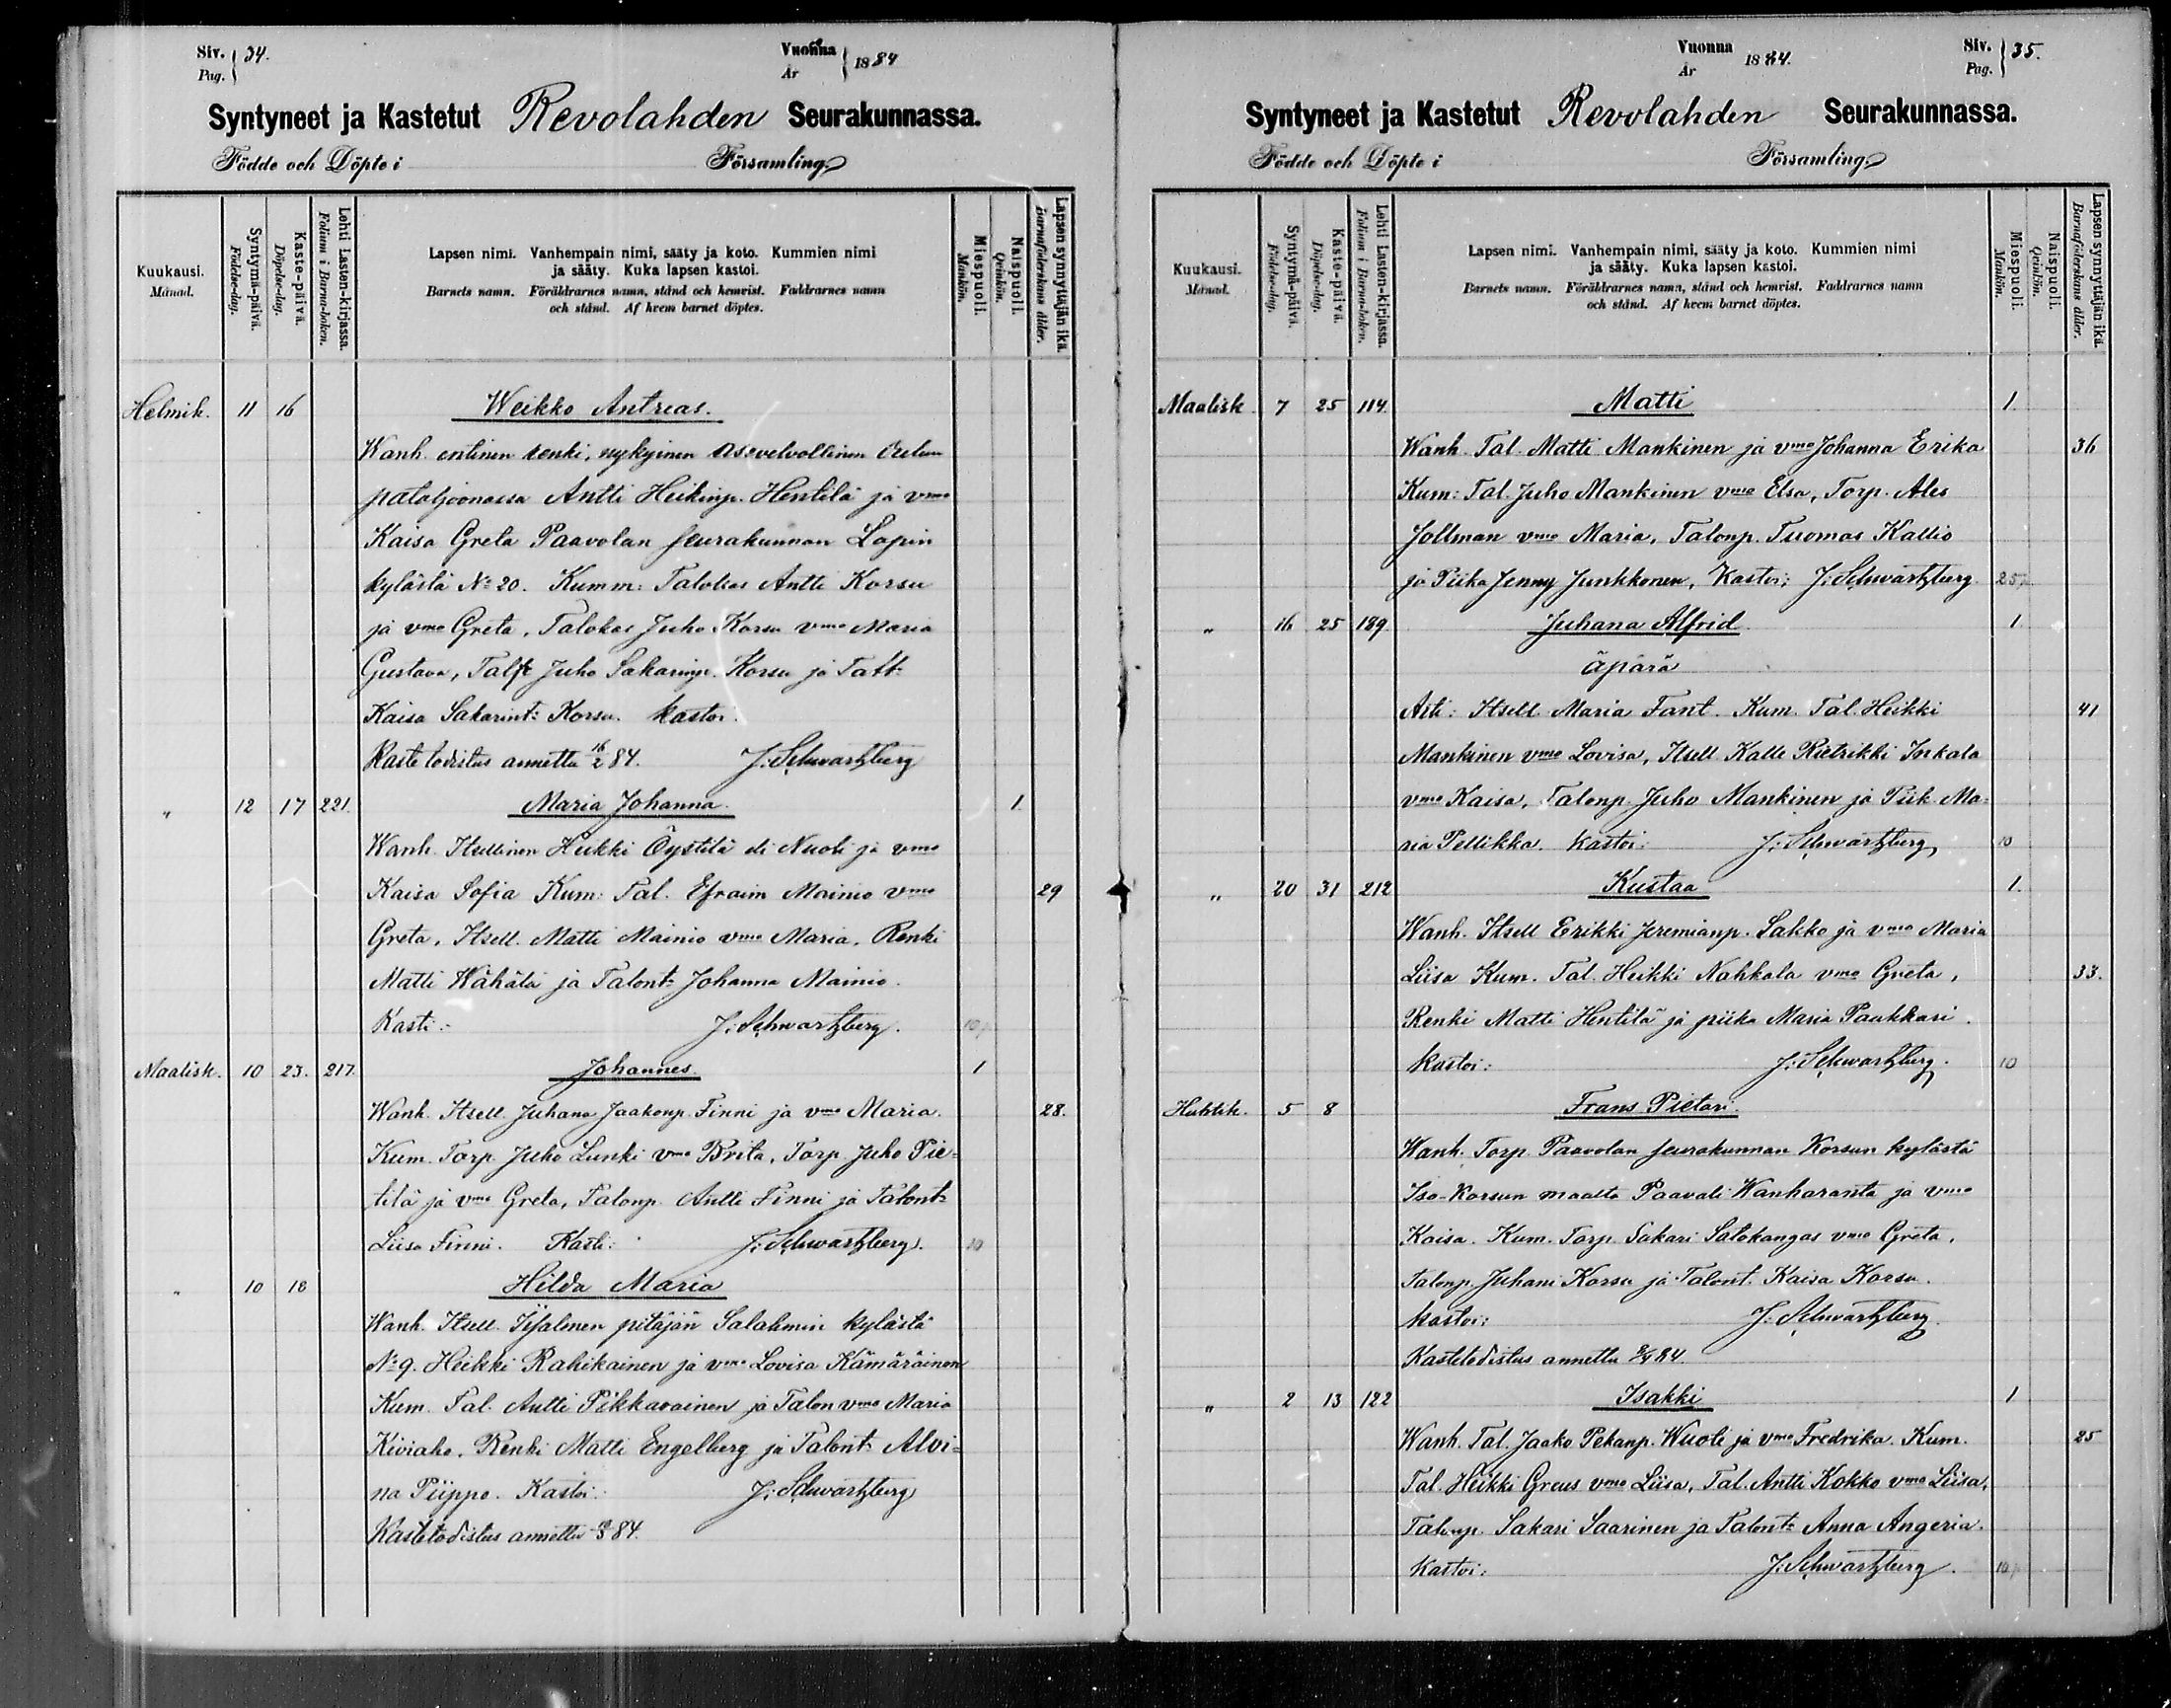 Siv. 34.
Pag.
Vuonna 1884
År
Syntyneet ja Kastetut Revolahden Seurakunnassa.
Födde och Döpte i Församling
Kuukausi.
Månad.
Syntymä-päivä.
Födelse-dag.
Kaste-päivä.
Döpelse-dag.
Lehti Lasten-kirjassa.
Folium i Barna-boken.
Lapsen nimi. Vanhempain nimi, sääty ja koto. Kummien nimi
ja sääty. Kuka lapsen kastoi.
Barnets namn. Föräldrarnes namn, stånd och hemvist. Faddrarnes namn
och stånd. Af hvem barnet döptes.
Miespuoli.
Mankön.
Naispuoli.
Qvinkön.
Lapsen synnyttäjän ikä.
Barnaföderskans ålder.
Helmik. 11 16 Weikko Antreas.
Wanh. entinen renki, nykyinen asevelvollinen Oulun
pataljoonassa Antti Heikinp. Hentilä ja vmo
Kaisa Greta Paavolan seurakunnan Lapin
kylästä No 20. Kumm: Talokas Antti Korsu
ja vmo Greta, Talokas Juho Korsu vmo Maria
Gustava, Juho Sakarinp. Korsu ja
Kaisa Sakarint: Korsu. Kastoi:
Kastetodistus annettu 16/2 84. J: Schwartzberg
" 12 17 221. Maria Johanna. 1.
Wanh. Itsellinen Heikki Öystilä eli Nuoli ja vmo
Kaisa Sofia Kum: Tal. Efraim Mainio vmo 29
Greta, Itsell. Matti Mainio vmo Maria, Renki
Matti Wähälä ja Talont: Johanna Mainio.
Kasti: J: Schwartzberg. 10
Maalisk. 10 23. 217. Johannes 1
Wanh. Itsell. Juhana Jaakonp. Finni ja vmo Maria. 28.
Kum. Torp. Juho Lunki vmo Brita, Torp. Juho Pie=
tilä ja vmo Greta, Talonp. Antti Finni ja Talont:
Liisa Finni. Kasti: J: Schwartzberg. 10
" 10 18 Hilda Maria
Wanh. Itsell. Iisalmen pitäjän Salahmin kylästä
No 9. Heikki Rahikainen ja vmo Lovisa Kämäräinen
Kum. Tal. Antti Pikkarainen ja Talon vmo Maria
Kiviaho, Renki Matti Engelberg ja Talont: Alvi=
na Piippo. Kastoi: J: Schwartzberg
Kastetodistus annettu 84.
Vuonna 1884.
År
Siv. 35.
Pag.
Syntyneet ja Kastetut Revolahden Seurakunnassa.
Födde och Döpte i Församling
Kuukausi.
Månad.
Syntymä-päivä.
Födelse-dag.
Kaste-päivä.
Döpelse-dag.
Lehti Lasten-kirjassa.
Folium i Barna-boken.
Lapsen nimi. Vanhempain nimi, sääty ja koto. Kummien nimi
ja sääty. Kuka lapsen kastoi.
Barnets namn. Föräldrarnes namn, stånd och hemvist. Faddrarnes namn
och stånd. Af hvem barnet döptes.
Miespuoli.
Mankön.
Naispuoli.
Qvinkön.
Lapsen synnyttäjän ikä.
Barnaföderskans ålder.
Maalisk 7 25 114. Matti 1.
Wanh. Tal. Matti Mankinen ja vmo Johanna Erika 36
Kum: Tal. Juho Mankinen vmo Elsa, Torp. Ales
Jollman vmo Maria, Talonp. Tuomas Kallio
ja Piika Jenny Junkkonen, Kastoi: J: Schwartzberg. 25
" 16 25 189 Juhana Alfrid 1.
äpärä
Äiti: Itsell. Maria Fant. Kum. Tal. Heikki 41
Mankinen vmo Lovisa, Itsell. Kalle Rietrikki Inkala
vmo Kaisa, Talonp. Juho Mankinen ja Piik. Ma=
ria Pellikka. Kastoi: J: Schwartzberg, 10
" 20 31 212 Kustaa 1.
Wanh. Itsell Erikki Jeremianp. Sakko ja vmo Maria
Liisa Kum. Tal. Heikki Nahkala vmo Greta, 33.
Renki Matti Hentilä ja piika Maria Paukkari.
Kastoi: J: Schwartzberg. 10
Huhtik. 5 8 Frans Pietari.
Wanh. Torp. Paavolan seurakunnan Korsun kylästä
Iso-Korsun maalta Paavali Wanharanta ja vmo
Kaisa. Kum. Torp. Sakari Salokangas vmo Greta,
Talonp. Juhani Korsu ja Talont. Kaisa Korsu.
Kastoi: J: Schwartzberg.
Kastetodistus annettu 8/4 84.
" 2 13 122 Isakki 1
Wanh. Tal. Jaako Pekanp. Wuoti ja vmo Fredrika. Kum. 25
Tal. Heikki Greus vmo Liisa, Tal. Antti Kokko vmo Liisa,
Talonp. Sakari Saarinen ja Talont: Anna Angeria.
Kastoi: J: Schwartzberg. 10